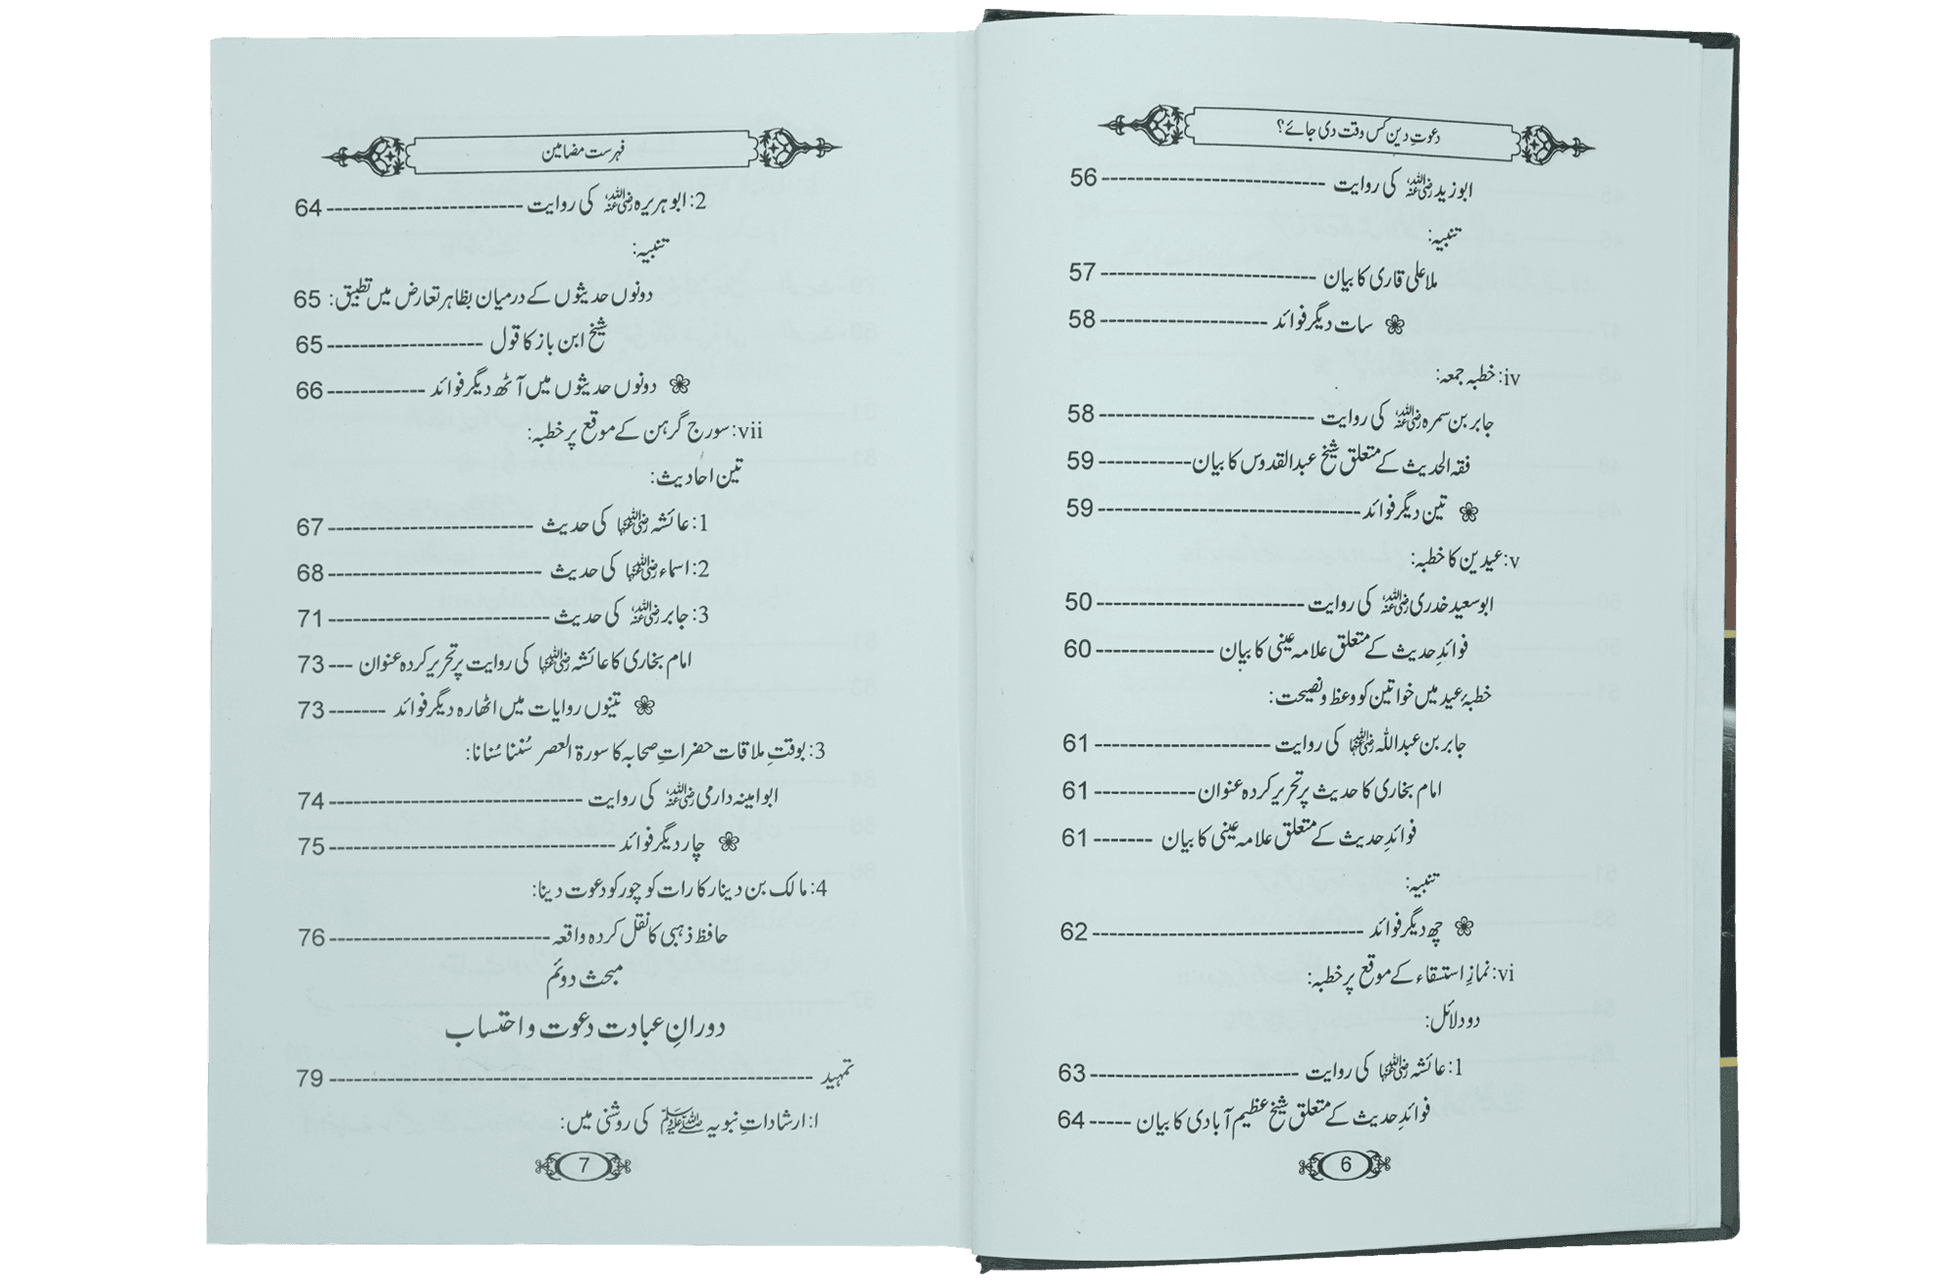 دعوتِ دین کس وقت دی جائے؟
ابوزید رضی اللہ عنہ کی روایت ---------------------------- 56
تنبیہ:
ملا علی قاری کا بیان ---------------------------- 57
❀ سات دیگر فوائد --------------------- 58
iv: خطبہ جمعہ:
جابر بن سمرہ رضی اللہ عنہ کی روایت --------------------------- 58
فقہ الحدیث کے متعلق شیخ عبدالقدوس کا بیان ------------ 59
❀ تین دیگر فوائد --------------------------------- 59
v: عیدین کا خطبہ:
ابوسعید خدری رضی اللہ عنہ کی روایت -------------------------- 50
فوائدِ حدیث کے متعلق علامہ عینی کا بیان --------------- 60
خطبۂ عید میں خواتین کو وعظ و نصیحت:
جابر بن عبداللہ رضی اللہ عنہما کی روایت ---------------------- 61
امام بخاری کا حدیث پر تحریر کردہ عنوان ------------- 61
فوائدِ حدیث کے متعلق علامہ عینی کا بیان ------- 61
تنبیہ:
❀ چھ دیگر فوائد ---------------------------------- 62
vi: نمازِ استسقاء کے موقع پر خطبہ:
دو دلائل:
1: عائشہ رضی اللہ عنہا کی روایت -------------------------- 63
فوائدِ حدیث کے متعلق شیخ عظیم آبادی کا بیان ----- 64
6
فہرست مضامین
2: ابو ہریرہ رضی اللہ عنہ کی روایت ------------------------ 64
تنبیہ:
دونوں حدیثوں کے درمیان بظاہر تعارض میں تطبیق: 65
شیخ ابن باز کا قول ------------------- 65
❀ دونوں حدیثوں میں آٹھ دیگر فوائد ------------ 66
vii: سورج گرہن کے موقع پر خطبہ:
تین احادیث:
1: عائشہ رضی اللہ عنہا کی حدیث ------------------------- 67
2: اسماء رضی اللہ عنہا کی حدیث -------------------------- 68
3: جابر رضی اللہ عنہ کی حدیث --------------------------- 71
امام بخاری کا عائشہ رضی اللہ عنہا کی روایت پر تحریر کردہ عنوان --- 73
❀ تینوں روایات میں اٹھارہ دیگر فوائد ------- 73
3: بوقتِ ملاقات حضراتِ صحابہ کا سورۃ العصر سُننا سُنانا:
ابوامینہ دارمی رضی اللہ عنہ کی روایت ------------------------------- 74
❀ چار دیگر فوائد ----------------------------------- 75
4: مالک بن دینار کا رات کو چور کو دعوت دینا:
حافظ ذہبی کا نقل کردہ واقعہ --------------------------- 76
مبحث دوئم
دورانِ عبادت دعوت و احتساب
تمہید ----------------------------------------------------------- 79
ا: ارشاداتِ نبویہ ﷺ کی روشنی میں:
7